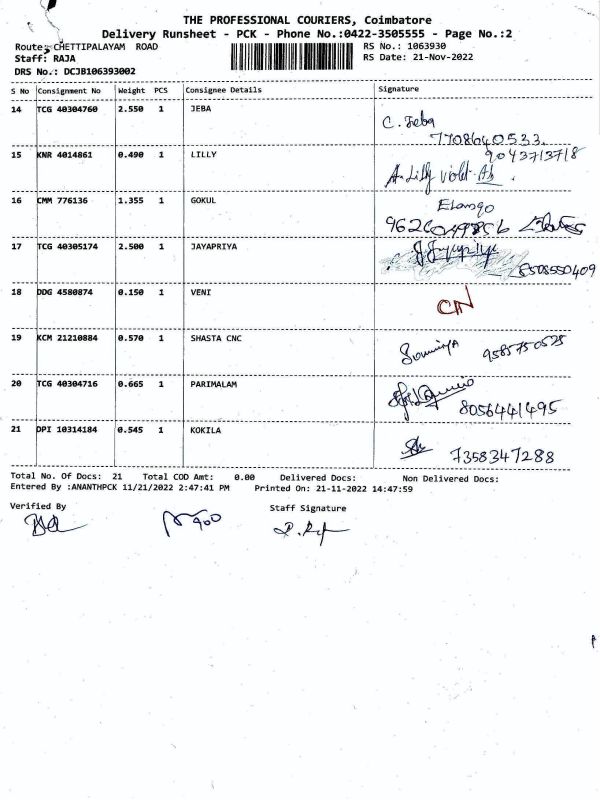 THE PROFESSIONAL COURIERS, Coimbatore
Delivery Runsheet - PCK - Phone No.:0422-3505555 - Page No.:2
Route: CHETTIPALAYAM ROAD
RS No.: 1063930
Staff: RAJA
RS Date: 21-Nov-2022
DRS No.: DCJB106393002
S No Consignment No Weight PCS Consignee Details Signature
14 TCG 40304760 2.550 1 JEBA C. Jeba
7708640533
15 KNR 4014861 0.490 1 LILLY 9043713718
A. Lilly violet
16 CMM 776136 1.355 1 GOKUL Elango
17 TCG 40305174 2.500 1 JAYAPRIYA J. Jayapriya
8508550409
18 DDG 4580874 0.150 1 VENI
19 KCM 21210884 0.570 1 SHASTA CNC Sowmiya 9585750525
20 TCG 40304716 0.665 1 PARIMALAM
8056441495
21 DPI 10314184 0.545 1 KOKILA 7358347288
Total No. Of Docs: 21 Total COD Amt: 0.00 Delivered Docs: Non Delivered Docs:
Entered By :ANANTHPCK 11/21/2022 2:47:41 PM Printed On: 21-11-2022 14:47:59
Verified By
Staff Signature